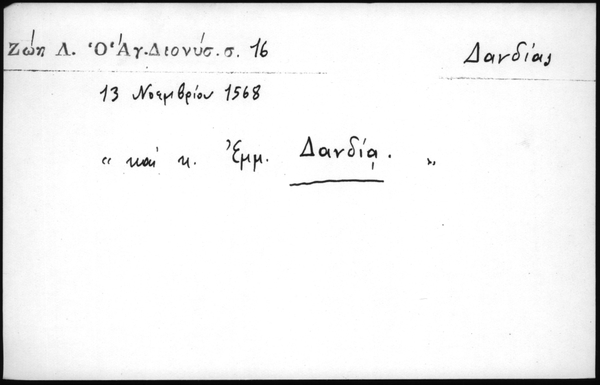 Ζώη Λ. Ὁ Ἁγ. Διονύσ. σ. 16 Δανδίας
13 Νοεμβρίου 1568
" καὶ κ. Ἐμμ. Δανδίᾳ. "